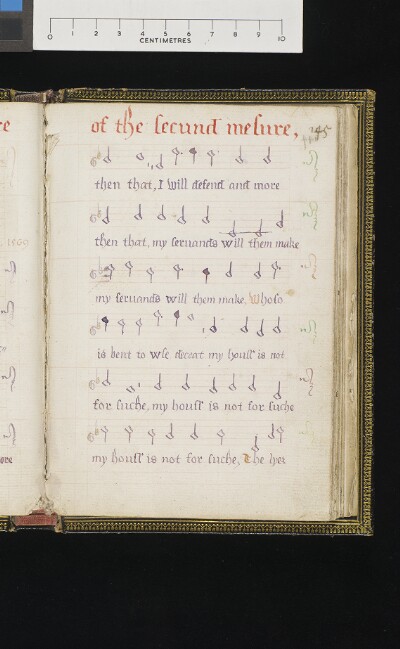 0 1 2 3 4 5 6 7 8 9 10
CENTIMETRES
of the secund mesure,
then that, I will defend and more
then that, my seruands will them make
my seruands will them make. Whoso
is bent to wse deceat my houss is not
for suche, my houss is not for suche
my houss is not for suche, The lyer